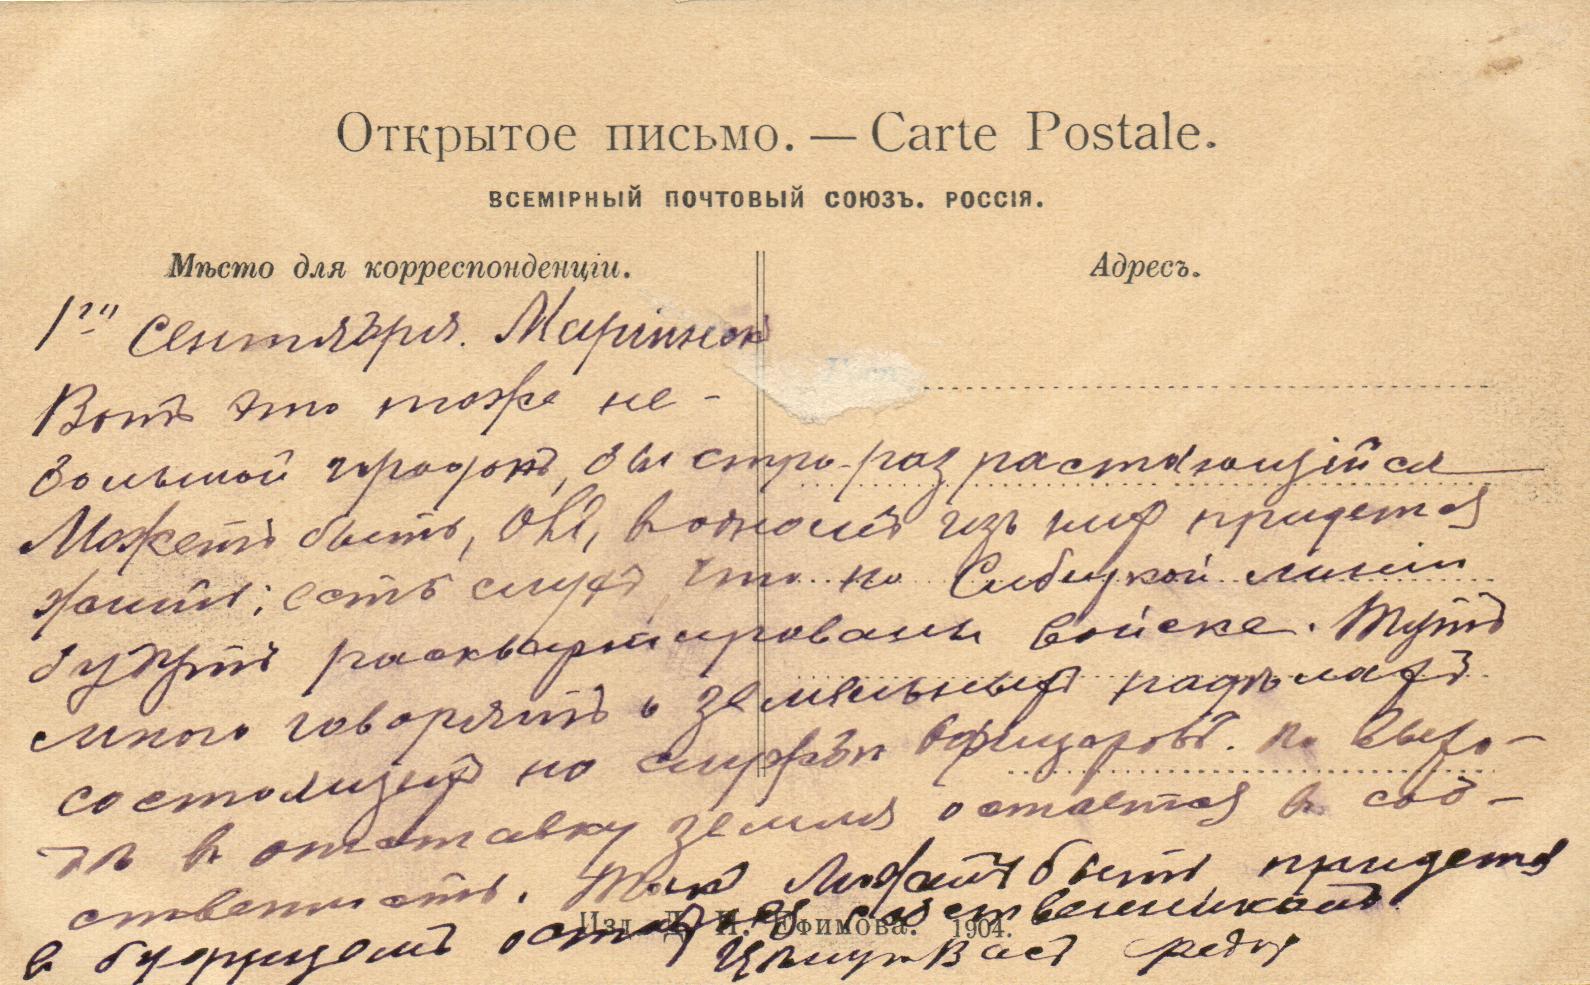 Открытое письмо. — Carte Postale.
ВСЕМІРНЫЙ ПОЧТОВЫЙ СОЮЗЪ. РОССІЯ.
Мѣсто для корреспонденціи.
Адресъ.
1го Сентября. Маріинск
Вотъ это тоже не-
большой городокъ, быстро разрастающійся
Можетъ быть, в одномъ изъ них придется
жить; есть слухъ что по Сибирской линіи
будутъ расквартированы войска. Тутъ
много говорятъ о земельныхъ надѣлахъ
состоящихъ на службѣ офицеровъ. по выхо-
дѣ в отставку земля остается в соб-
ственность. Так можетъ быть придется
в будущемъ остаться собственникомъ.
Изд. Д. П. Ефимова. 1904.
Цѣлую Васъ